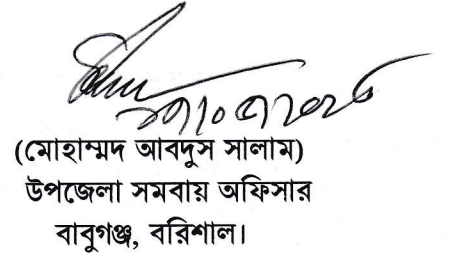 (মোহাম্মদ আবদুস সালাম)
উপজেলা সমবায় অফিসার
বাবুগঞ্জ, বরিশাল।